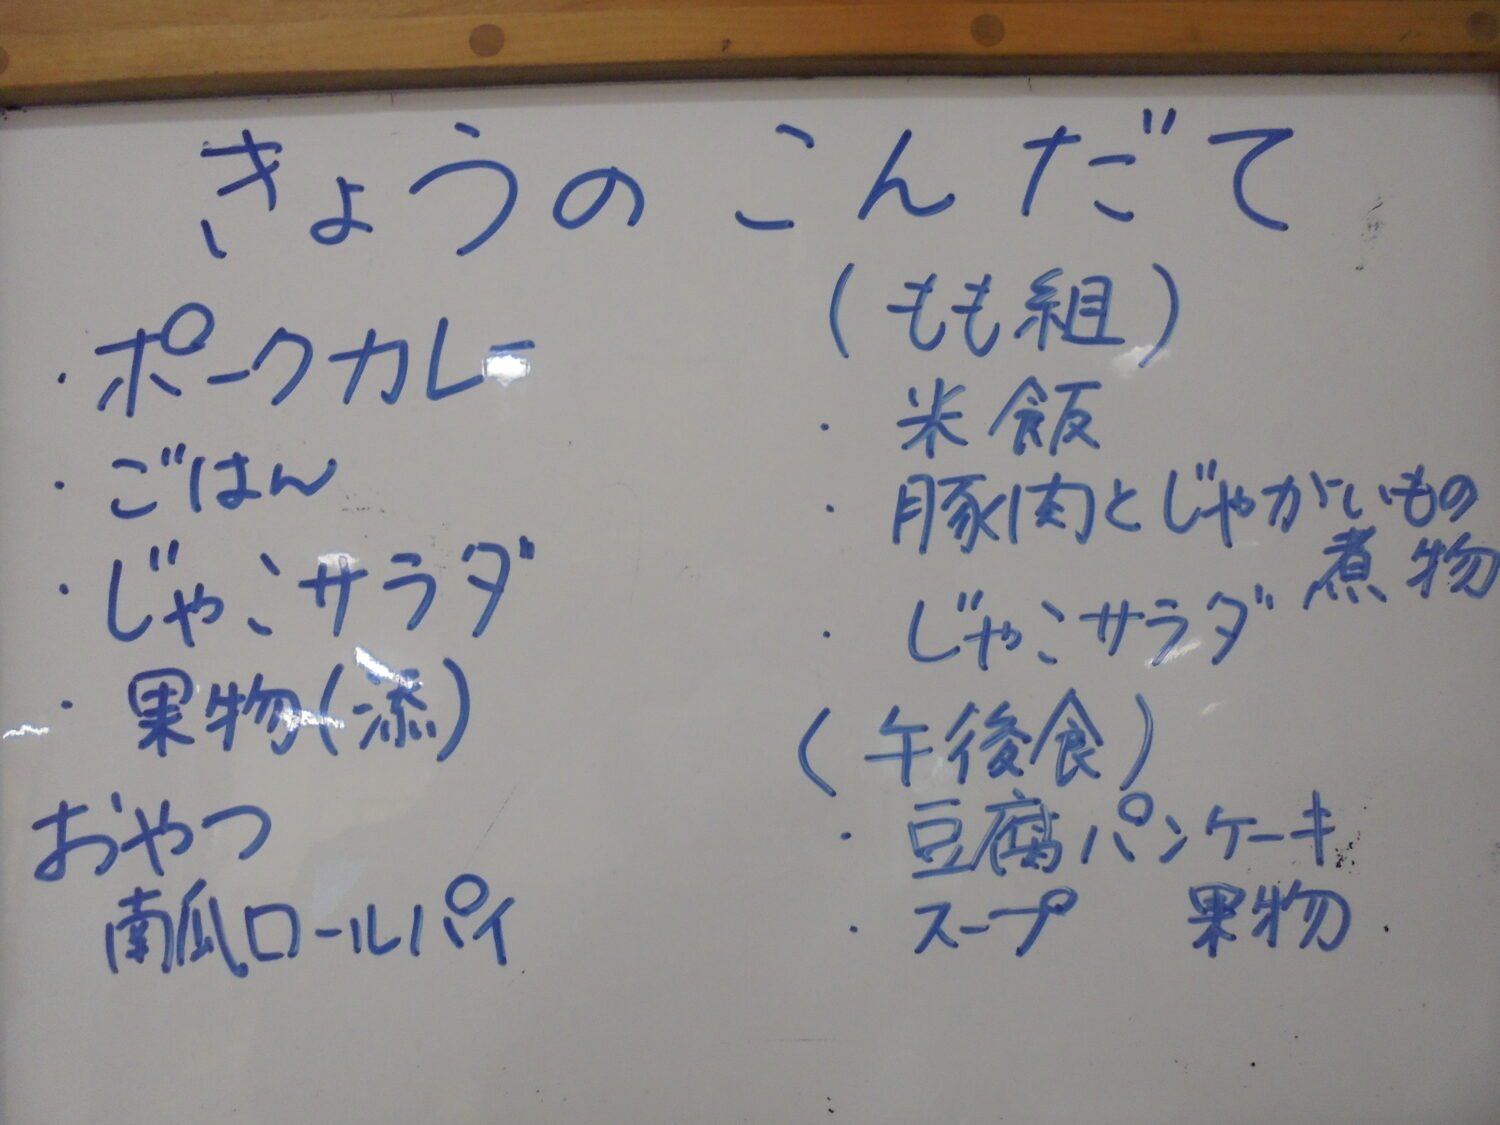 きょうの こんだて
・ポークカレー
・ごはん
・じゃこサラダ
・果物(添)
おやつ
南瓜ロールパイ
(もも組)
・米飯
・豚肉とじゃがいもの
煮物
・じゃこサラダ
(午後食)
・豆腐パンケーキ
・スープ 果物